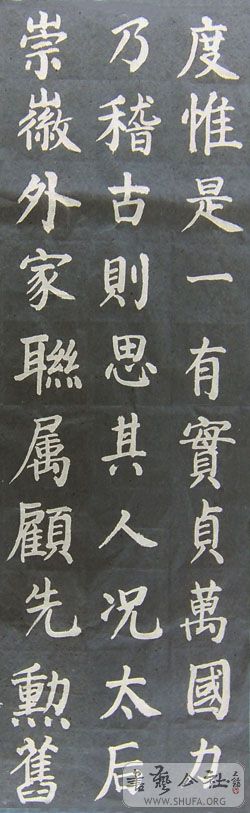 度惟是一有實貞萬國力
乃稽古則思其人况太后
崇徽外家聯属顧先勲舊
書藝公社
WWW.SHUFA.ORG